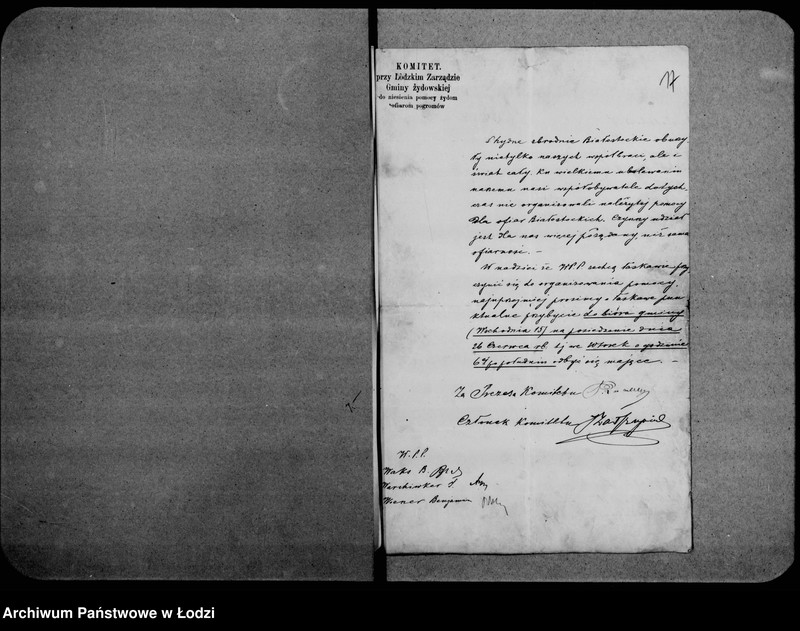 KOMITET.
przy Łódzkim Zarządzie
Gminy żydowskiej
do niesienia pomocy żydom
ofiarom pogromów
17
Ohydne zbrodnie Białostockie oburzy
ły nietylko naszych współbraci, ale i
świat cały. Ku wielkiemu ubolewaniu
naszemu nasi współobywatele dotych
czas nie organizowali należytej pomocy
dla ofiar Białostockich. Czynny udział
jest dla nas więcej pożądany, niż sama
ofiarność. –
W nadziei że W.P.P. zechcą łaskawie przy
czynić się do organizowania pomocy,
najuprzejmiej prosimy o łaskawe pun
ktualne przybycie do biura gminy
(Wschodnia 15) na posiedzenie dnia
26 Czerwca rb. tj we Wtorek o godzinie
6½ po południu odbyć się mające. –
Za Prezesa Komitetu
Członek Komitetu
W.P.P.
Waks B
Warchiwker
Wiener Benjamin
Archiwum Państwowe w Łodzi